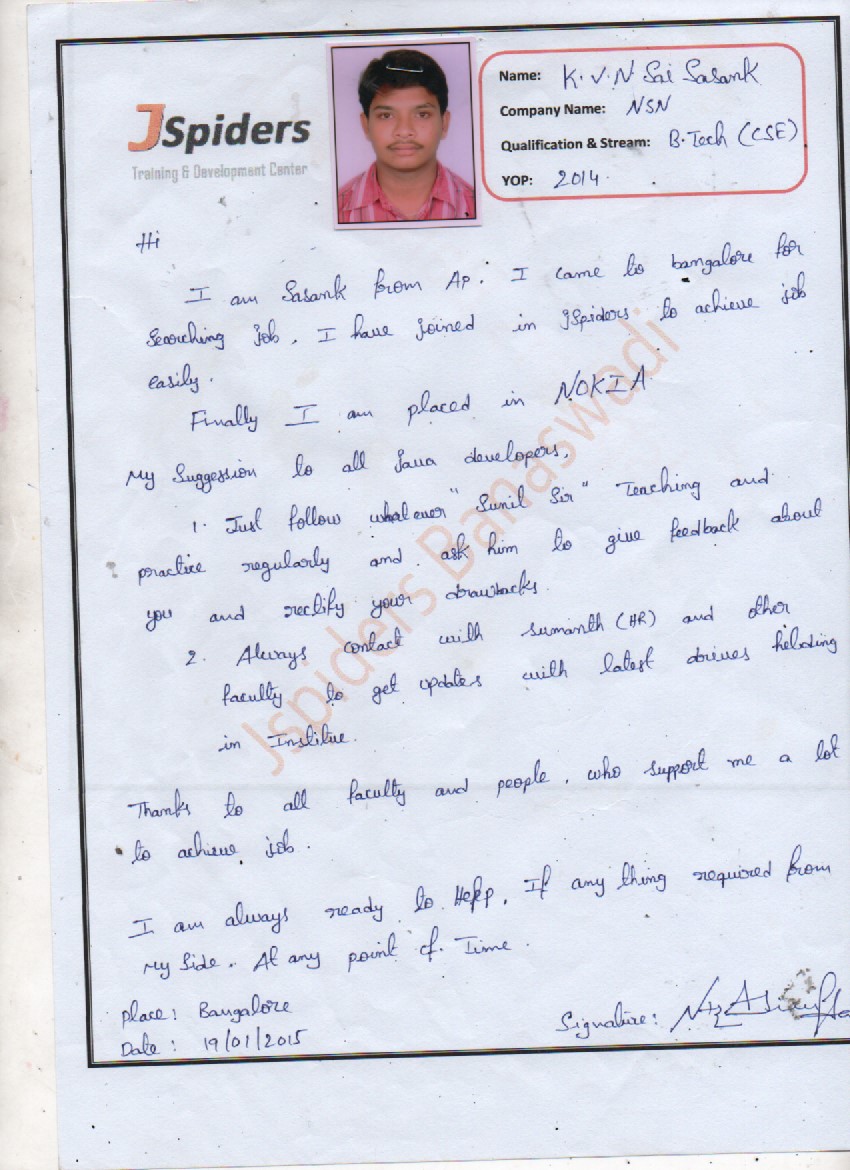 JSpiders
Training & Development Center
Name: K.V.N Sai Sasank
Company Name: NSN
Qualification & Stream: B.Tech (CSE)
YOP: 2014.
Hi
I am Sasank from AP. I came to bangalore for
Searching job. I have joined in JSpiders to achieve job
easily.
Finally I am placed in NOKIA.
My Suggession to all Java developers,
1. Just follow whatever "Sunil Sir" Teaching and
practice regularly and ask him to give feedback about
you and rectify your drawbacks.
2. Always contact with sumanth (HR) and other
faculty to get updates with latest drives heloding
in Institue.
Thanks to all faculty and people. who support me a lot
to achieve job.
I am always ready to Help, If any thing required from
My Side. At any point of Time.
Place: Bangalore
Date: 19/01/2015
Signature:
Jspiders Banaswadi